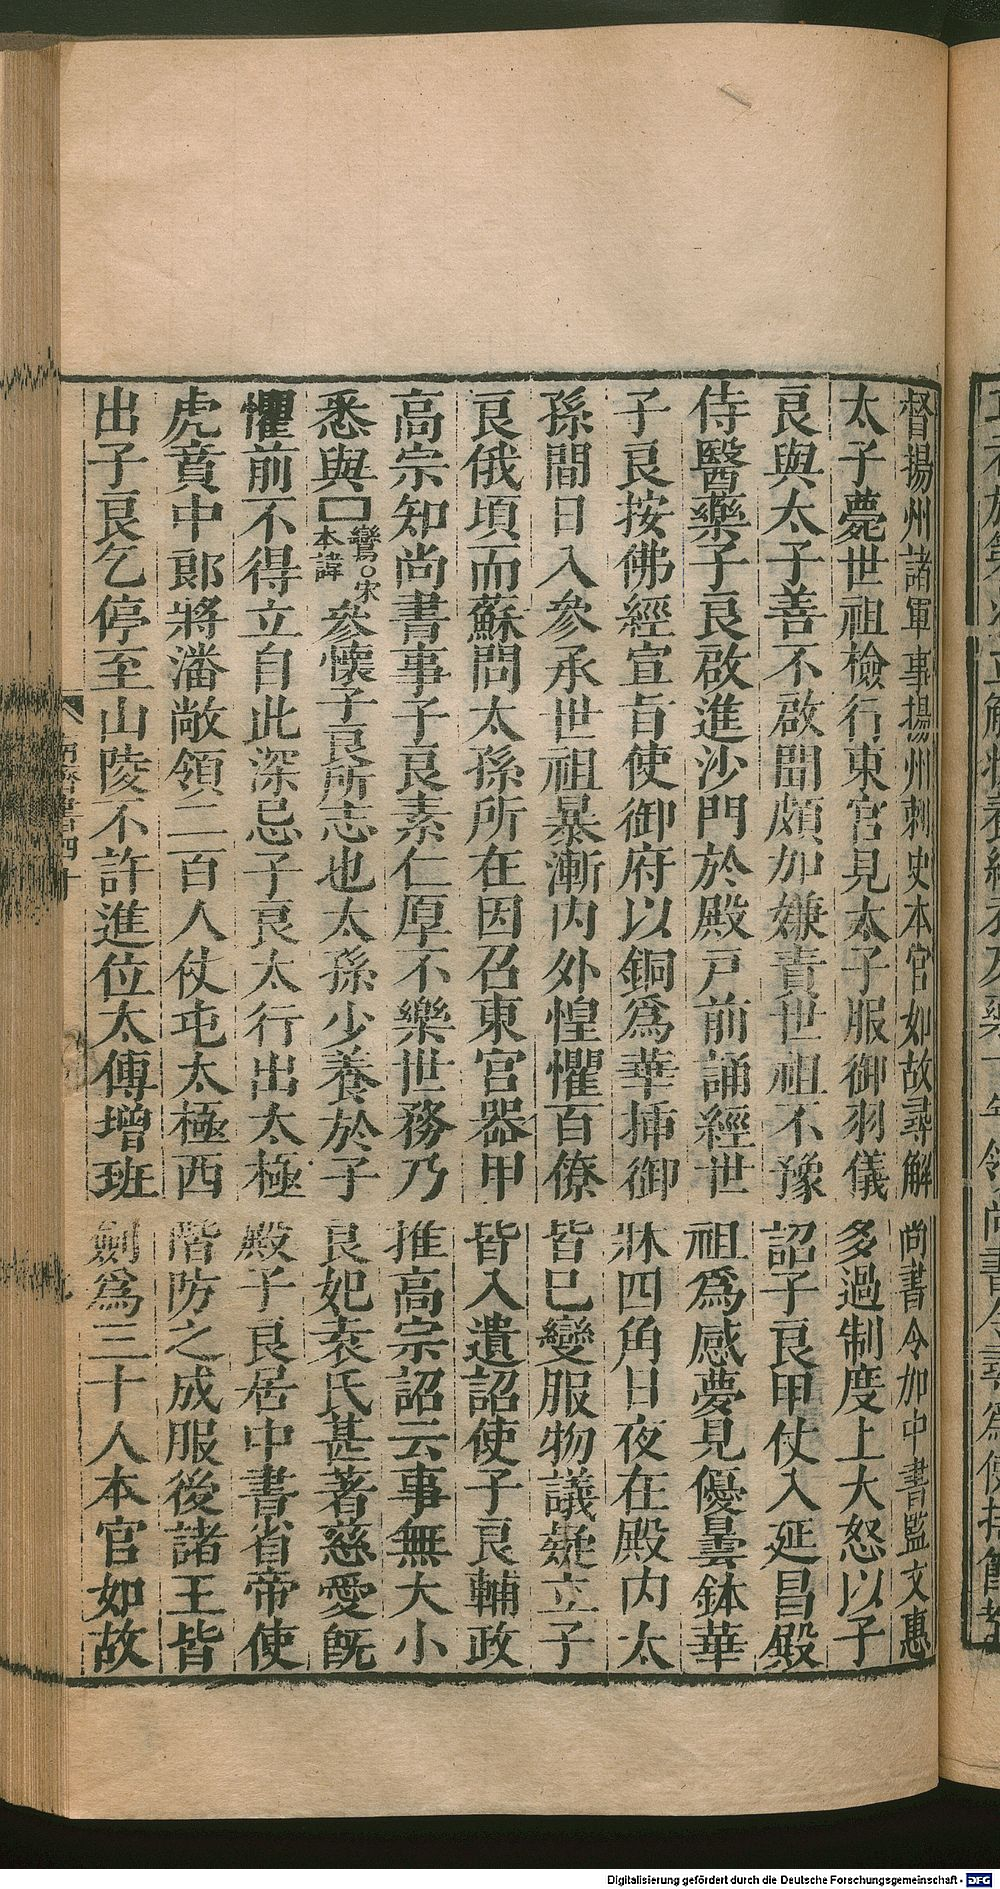 督揚州諸軍事揚州刺史本官如故尋解尚書令加中書監文惠
太子薨世祖檢行東宮見太子服御羽儀多過制度上大怒以子
良與太子善不啟聞頗加嫌責世祖不豫詔子良甲仗入延昌殿
侍醫藥子良啟進沙門於殿戸前誦經世祖爲感夢見優曇鉢華
子良按佛經宣旨使御府以銅爲華揷御牀四角日夜在殿内太
孫間日入參承世祖暴漸内外惶懼百僚皆已變服物議疑立子
良俄頃而蘇問太孫所在因召東宮器甲皆入遺詔使子良輔政
高宗知尚書事子良素仁厚不樂世務乃推高宗詔云事無大小
悉與□鸞○宋本諱參懷子良所志也太孫少養於子良妃袁氏甚著慈愛旣
懼前不得立自此深忌子良太行出太極殿子良居中書省帝使
虎賁中郎將潘敞領二百人仗屯太極西階防之成服後諸王皆
出子良乞停至山陵不許進位太傅增班劍爲三十人本官如故
Digitalisierung gefördert durch die Deutsche Forschungsgemeinschaft - DFG